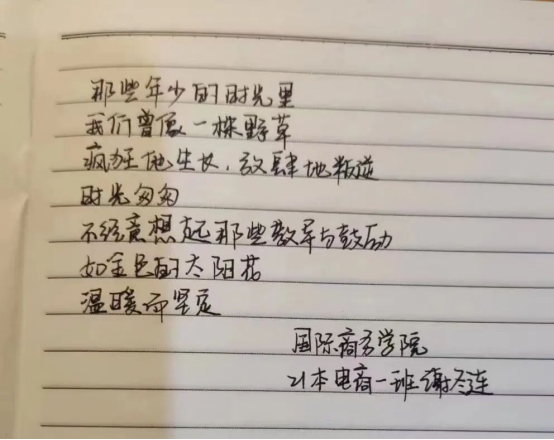 那些年少的时光里
我们曾像一株野草
疯狂地生长，放肆地叛逆
时光匆匆
不经意想起那些教导与鼓励
如金色的太阳花
温暖而坚定
国际商务学院
21本电商一班 谢连